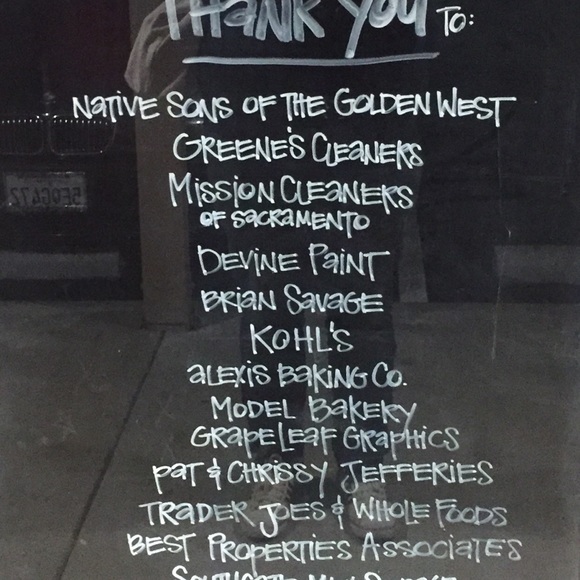 THANK YOU TO:
NATIVE SONS OF THE GOLDEN WEST
GREENE'S CLEANERS
MISSION CLEANERS
OF SACRAMENTO
DEVINE PAINT
BRIAN SAVAGE
KOHL'S
ALEXIS BAKING CO.
MODEL BAKERY
GRAPELEAF GRAPHICS
PAT & CHRISSY JEFFERIES
TRADER JOES & WHOLE FOODS
BEST PROPERTIES ASSOCIATES